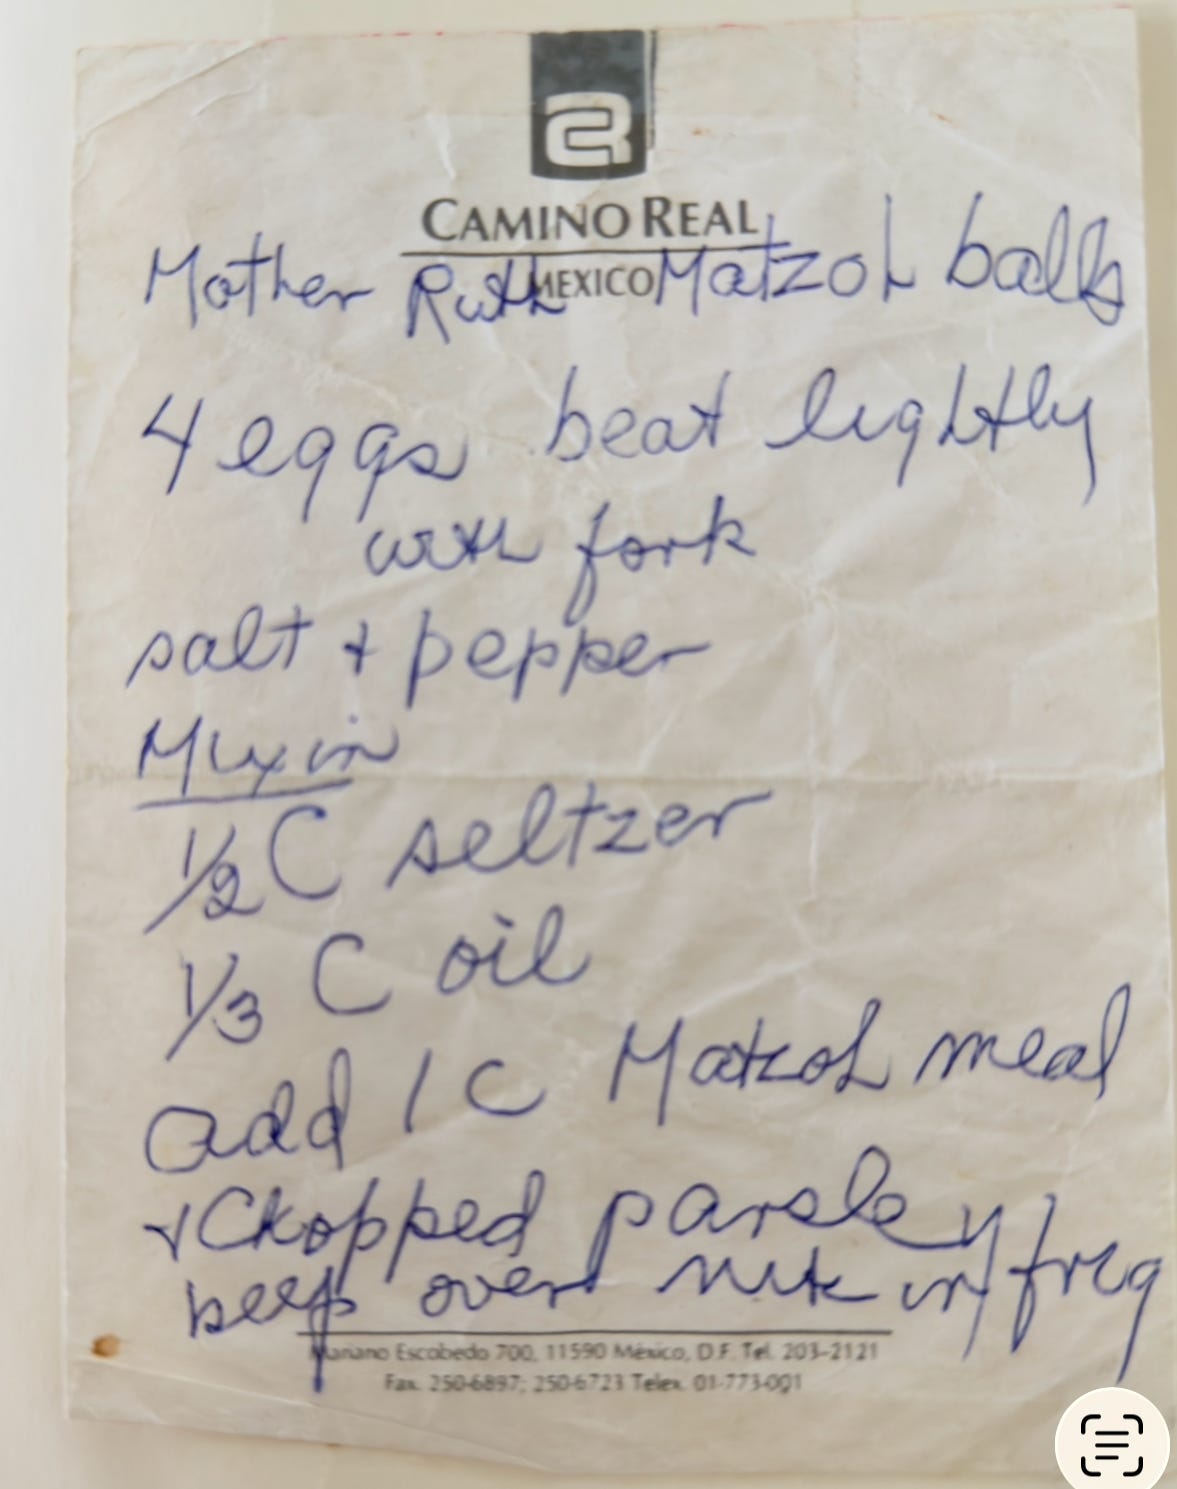 CAMINO REAL
MEXICO
Mother Ruth Matzoh balls
4 eggs beat lightly
with fork
salt + pepper
Mix in
1/2 C seltzer
1/3 C oil
add 1 C Matzoh meal
+ Chopped parsley
keep over nite in frig
Mariano Escobedo 700, 11590 México, D.F. Tel. 203-2121
Fax. 250-6897; 250-6723 Telex. 01-773-001